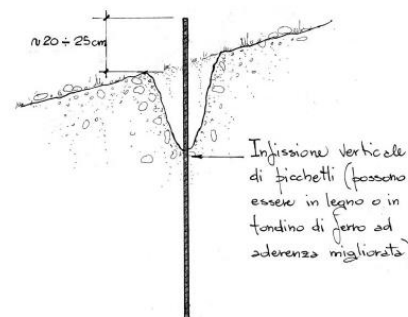 ~20 ÷ 25cm
Infissione verticale
di picchetti (possono
essere in legno o in
tondino di ferro ad
aderenza migliorata)